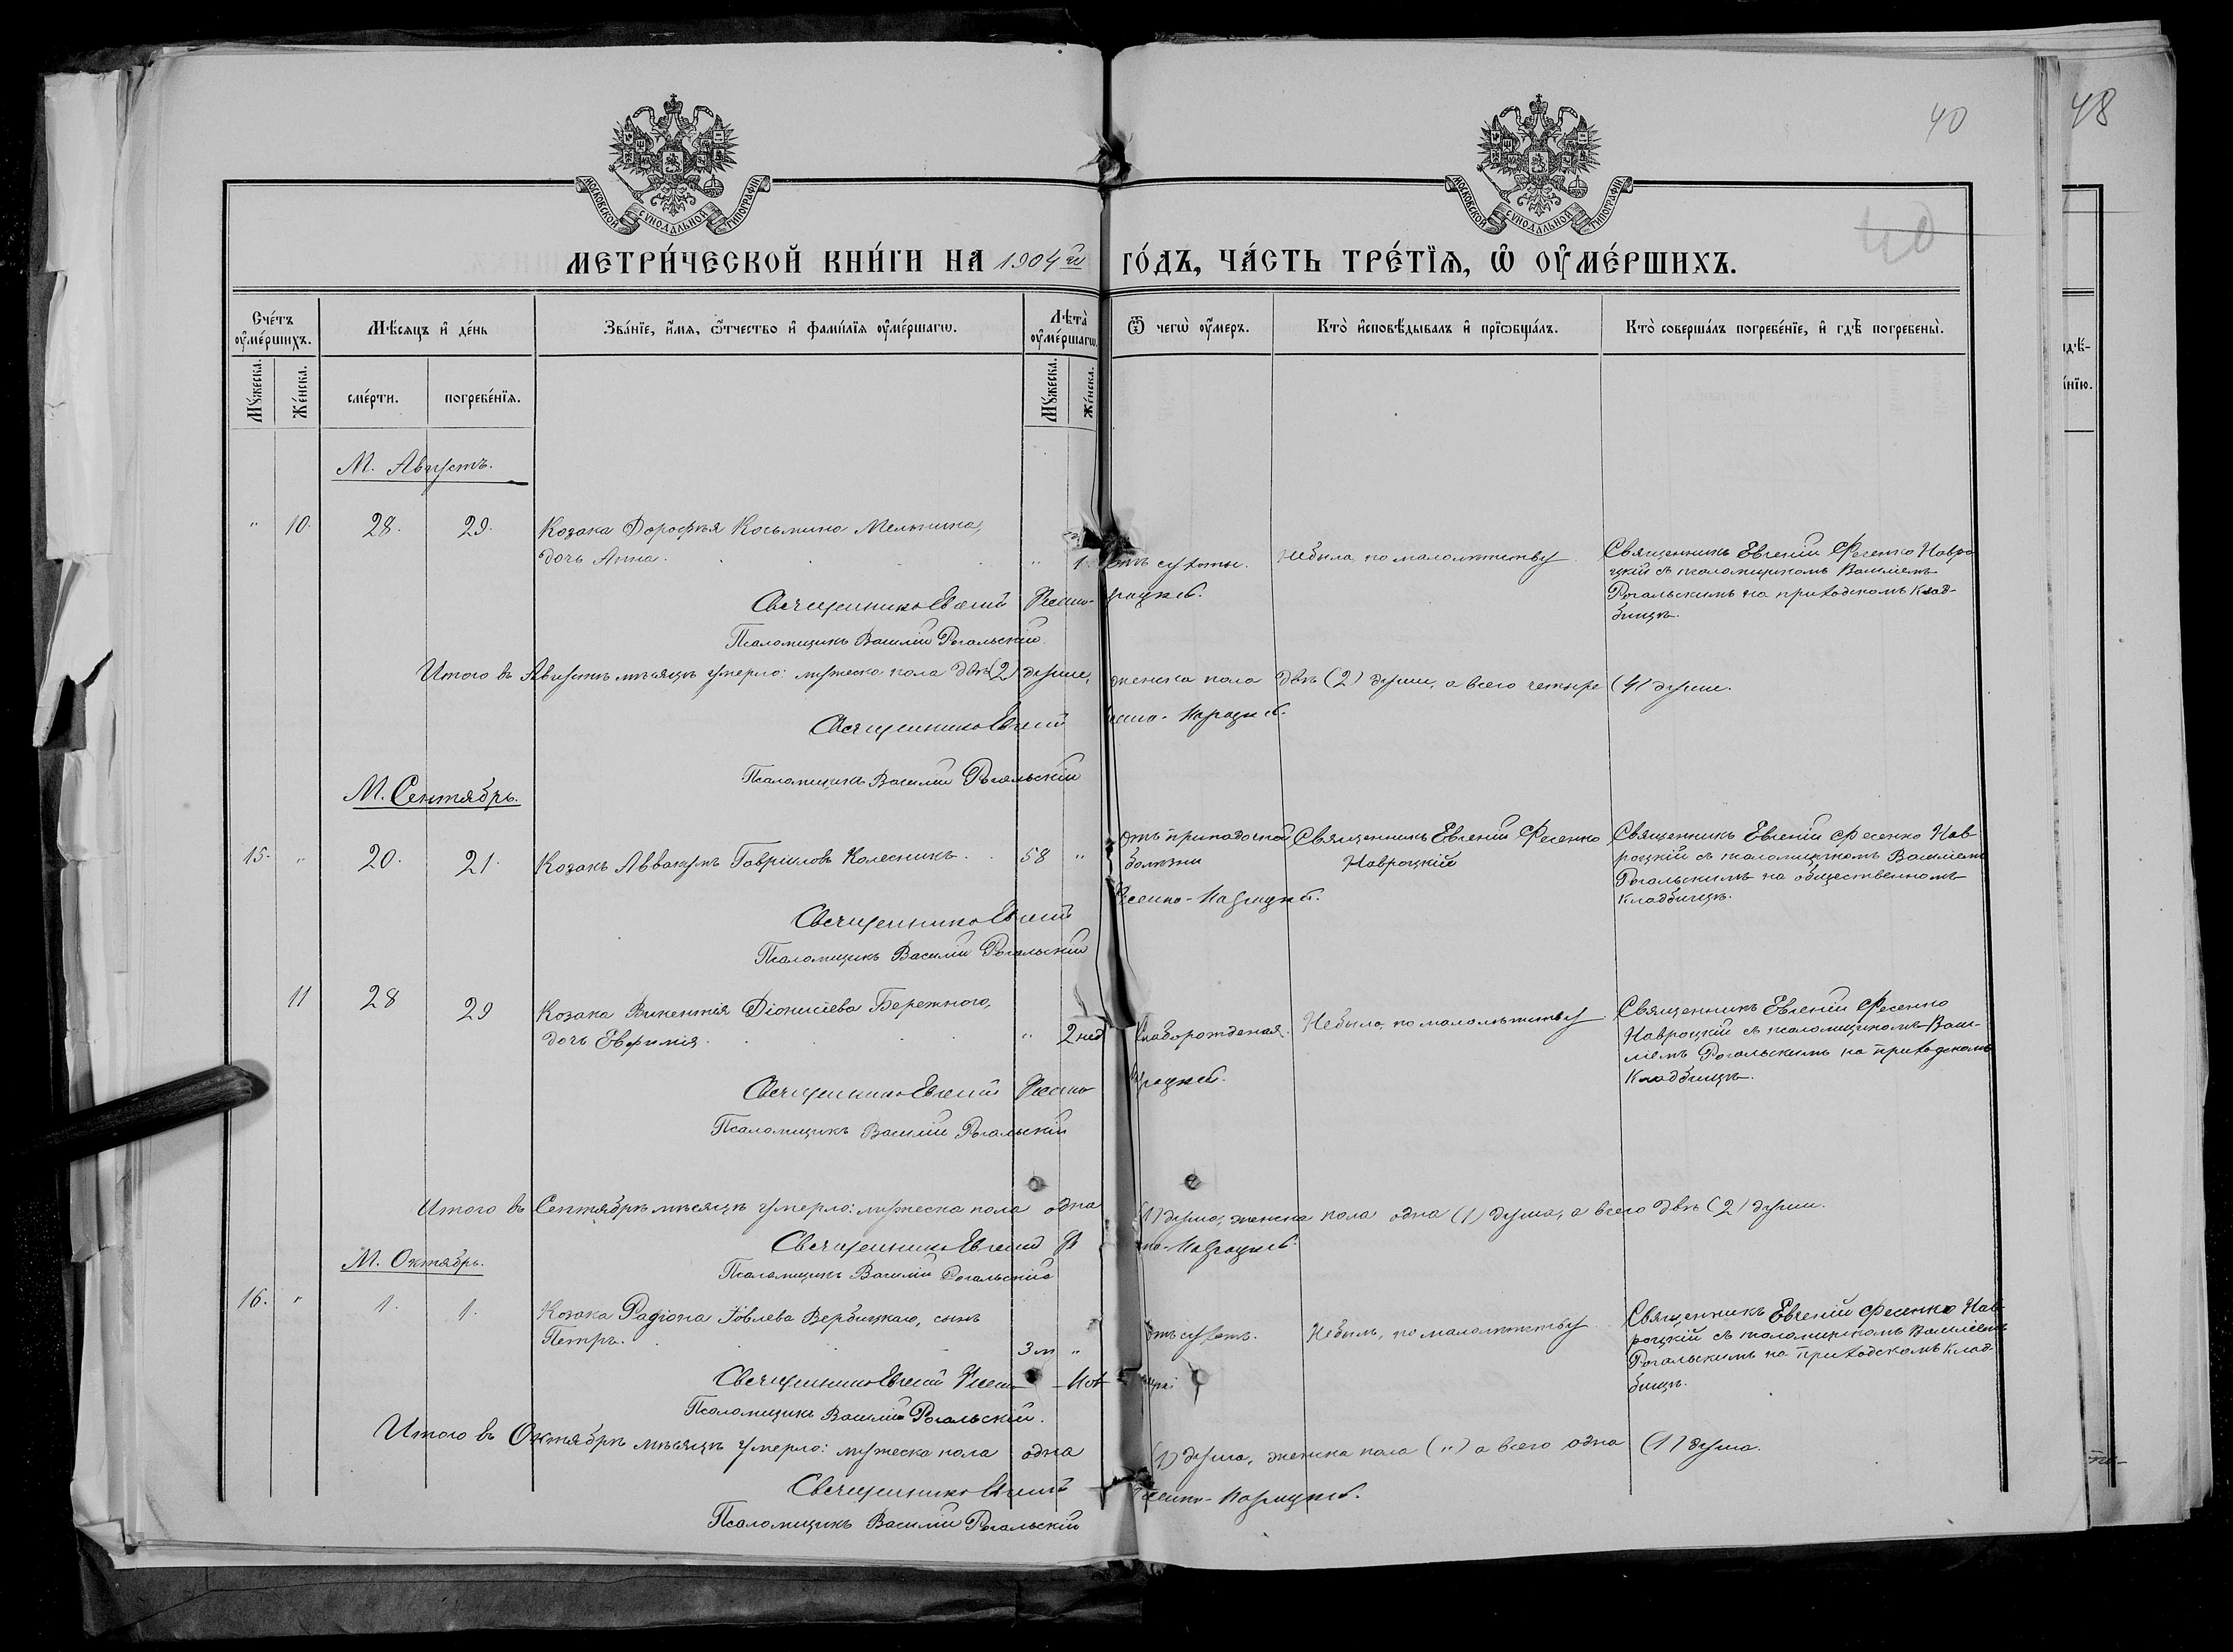 40
48
МОСКОВСКОЙ СѴНОДАЛЬНОЙ ТИПОГРАФІИ
МОСКОВСКОЙ СѴНОДАЛЬНОЙ ТИПОГРАФІИ
40
МЕТРИ́ЧЕСКОЙ КНИ́ГИ НА 1904й ГО́ДЪ, ЧА́СТЬ ТРЕ́ТЇѦ, Ѡ҆ ОУ҆МЕ́РШИХЪ.
Сче́тъ оу҆ме́ршихъ.
Мѣ́сяцъ и҆ де́нь
Зва́нїе, и҆́мѧ, ѻ҆́тчество и҆ фами́лїѧ оу҆ме́ршагѡ.
Лѣ́та̀ оу҆ме́ршагѡ.
Ѿ чегѡ̀ оу҆́меръ.
Кто̀ и҆сповѣ́дывалъ и҆ прїѡбща́лъ.
Кто̀ соверша́лъ погребе́нїе, и҆ гдѣ̀ погребены̀.
Мꙋ́жеска. Же́нска.
сме́рти. погребе́нїѧ.
Мꙋ́жеска. Же́нска.
М. Августъ.
" 10. 28. 29. Козака Дорофѣя Косьмина Мельника,
дочь Анна. " 1. отъ сухоты. Небыла, по малолѣтству Священникъ Евгеній Фесенко Навро
цкій съ псаломщикомъ Василіемъ
Рогальскимъ на приходскомъ клад-
бищѣ.
Священникъ Евгеній Фесенко-Навроцкій.
Псаломщикъ Василій Рогальскій.
Итого въ Августѣ мѣсяцѣ умерло: мужеска пола двѣ (2) души, женска пола двѣ (2) души, а всего четыре (4) души.
Священникъ Евгеній Фесенко-Навроцкій.
Псаломщикъ Василій Рогальскій
М. Сентябрь.
15. " 20. 21. Козакъ Аввакумъ Гавріиловъ Колесникъ. 58 " отъ припадочной Священникъ Евгеній Фесенко Священникъ Евгеній Фесенко Нав-
болѣзни Навроцкій роцкій съ псаломщикомъ Василіемъ
Рогальскимъ на общественномъ
кладбищѣ.
Священникъ Евгеній Фесенко-Навроцкій.
Псаломщикъ Василій Рогальскій
11 28 29 Козака Викентія Діонисіева Бережного,
дочь Евфимія. " 2 нед Слаборожденая. Небыла, по малолѣтству Священникъ Евгеній Фесенко
Навроцкій съ псаломщикомъ Васи-
ліемъ Рогальскимъ на приходскомъ
кладбищѣ.
Священникъ Евгеній Фесенко Навроцкій.
Псаломщикъ Василій Рогальскій
Итого въ Сентябрѣ мѣсяцѣ умерло: мужеска пола одна (1) душа, женска пола одна (1) душа, а всего двѣ (2) души.
Священникъ Евгеній Фесенко-Навроцкій.
Псаломщикъ Василій Рогальскій
М. Октябрь.
16. " 1. 1. Козака Радіона Іовлева Вербицкаго, сынъ
Петръ. 3 м " отъ сухотъ. Небылъ, по малолѣтству Священникъ Евгеній Фесенко Нав-
роцкій съ псаломщикомъ Василіемъ
Рогальскимъ на приходскомъ клад-
бищѣ.
Священникъ Евгеній Фесенко-Навроцкій
Псаломщикъ Василій Рогальскій.
Итого въ Октябрѣ мѣсяцѣ умерло: мужеска пола одна (1) душа, женска пола (") а всего одна (1) душа.
Священникъ Евгеній Фесенко-Навроцкій.
Псаломщикъ Василій Рогальскій